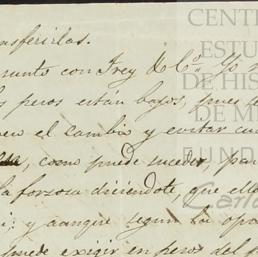 asferirlas.
asunto con Frey de C.ª Yo
pesos están bajos, pues
en el cambio y evitar
como puede suceder, par
la forzosa diciéndote, que ella
y aunque segun las
puede exigir en pesos del
CENT
ESTU
DE HIS
DE M
FUND
Carlo